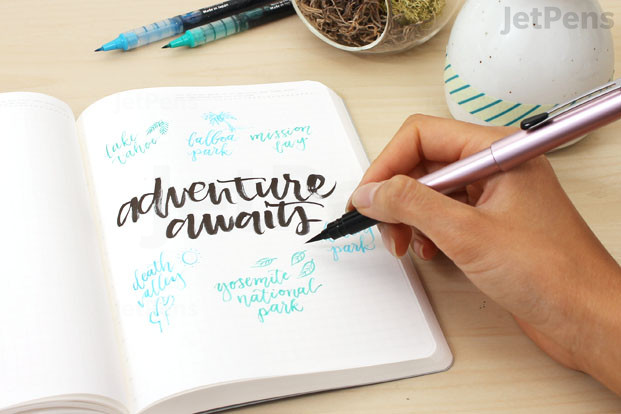 JetPens
lake
tahoe
balboa
park
mission
bay
adventure
awaits
park
death
valley
yosemite
national
park